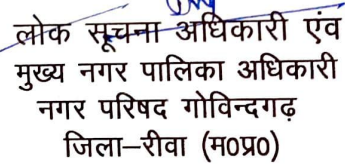 लोक सूचना अधिकारी एंव
मुख्य नगर पालिका अधिकारी
नगर परिषद गोविन्दगढ़
जिला–रीवा (म०प्र०)